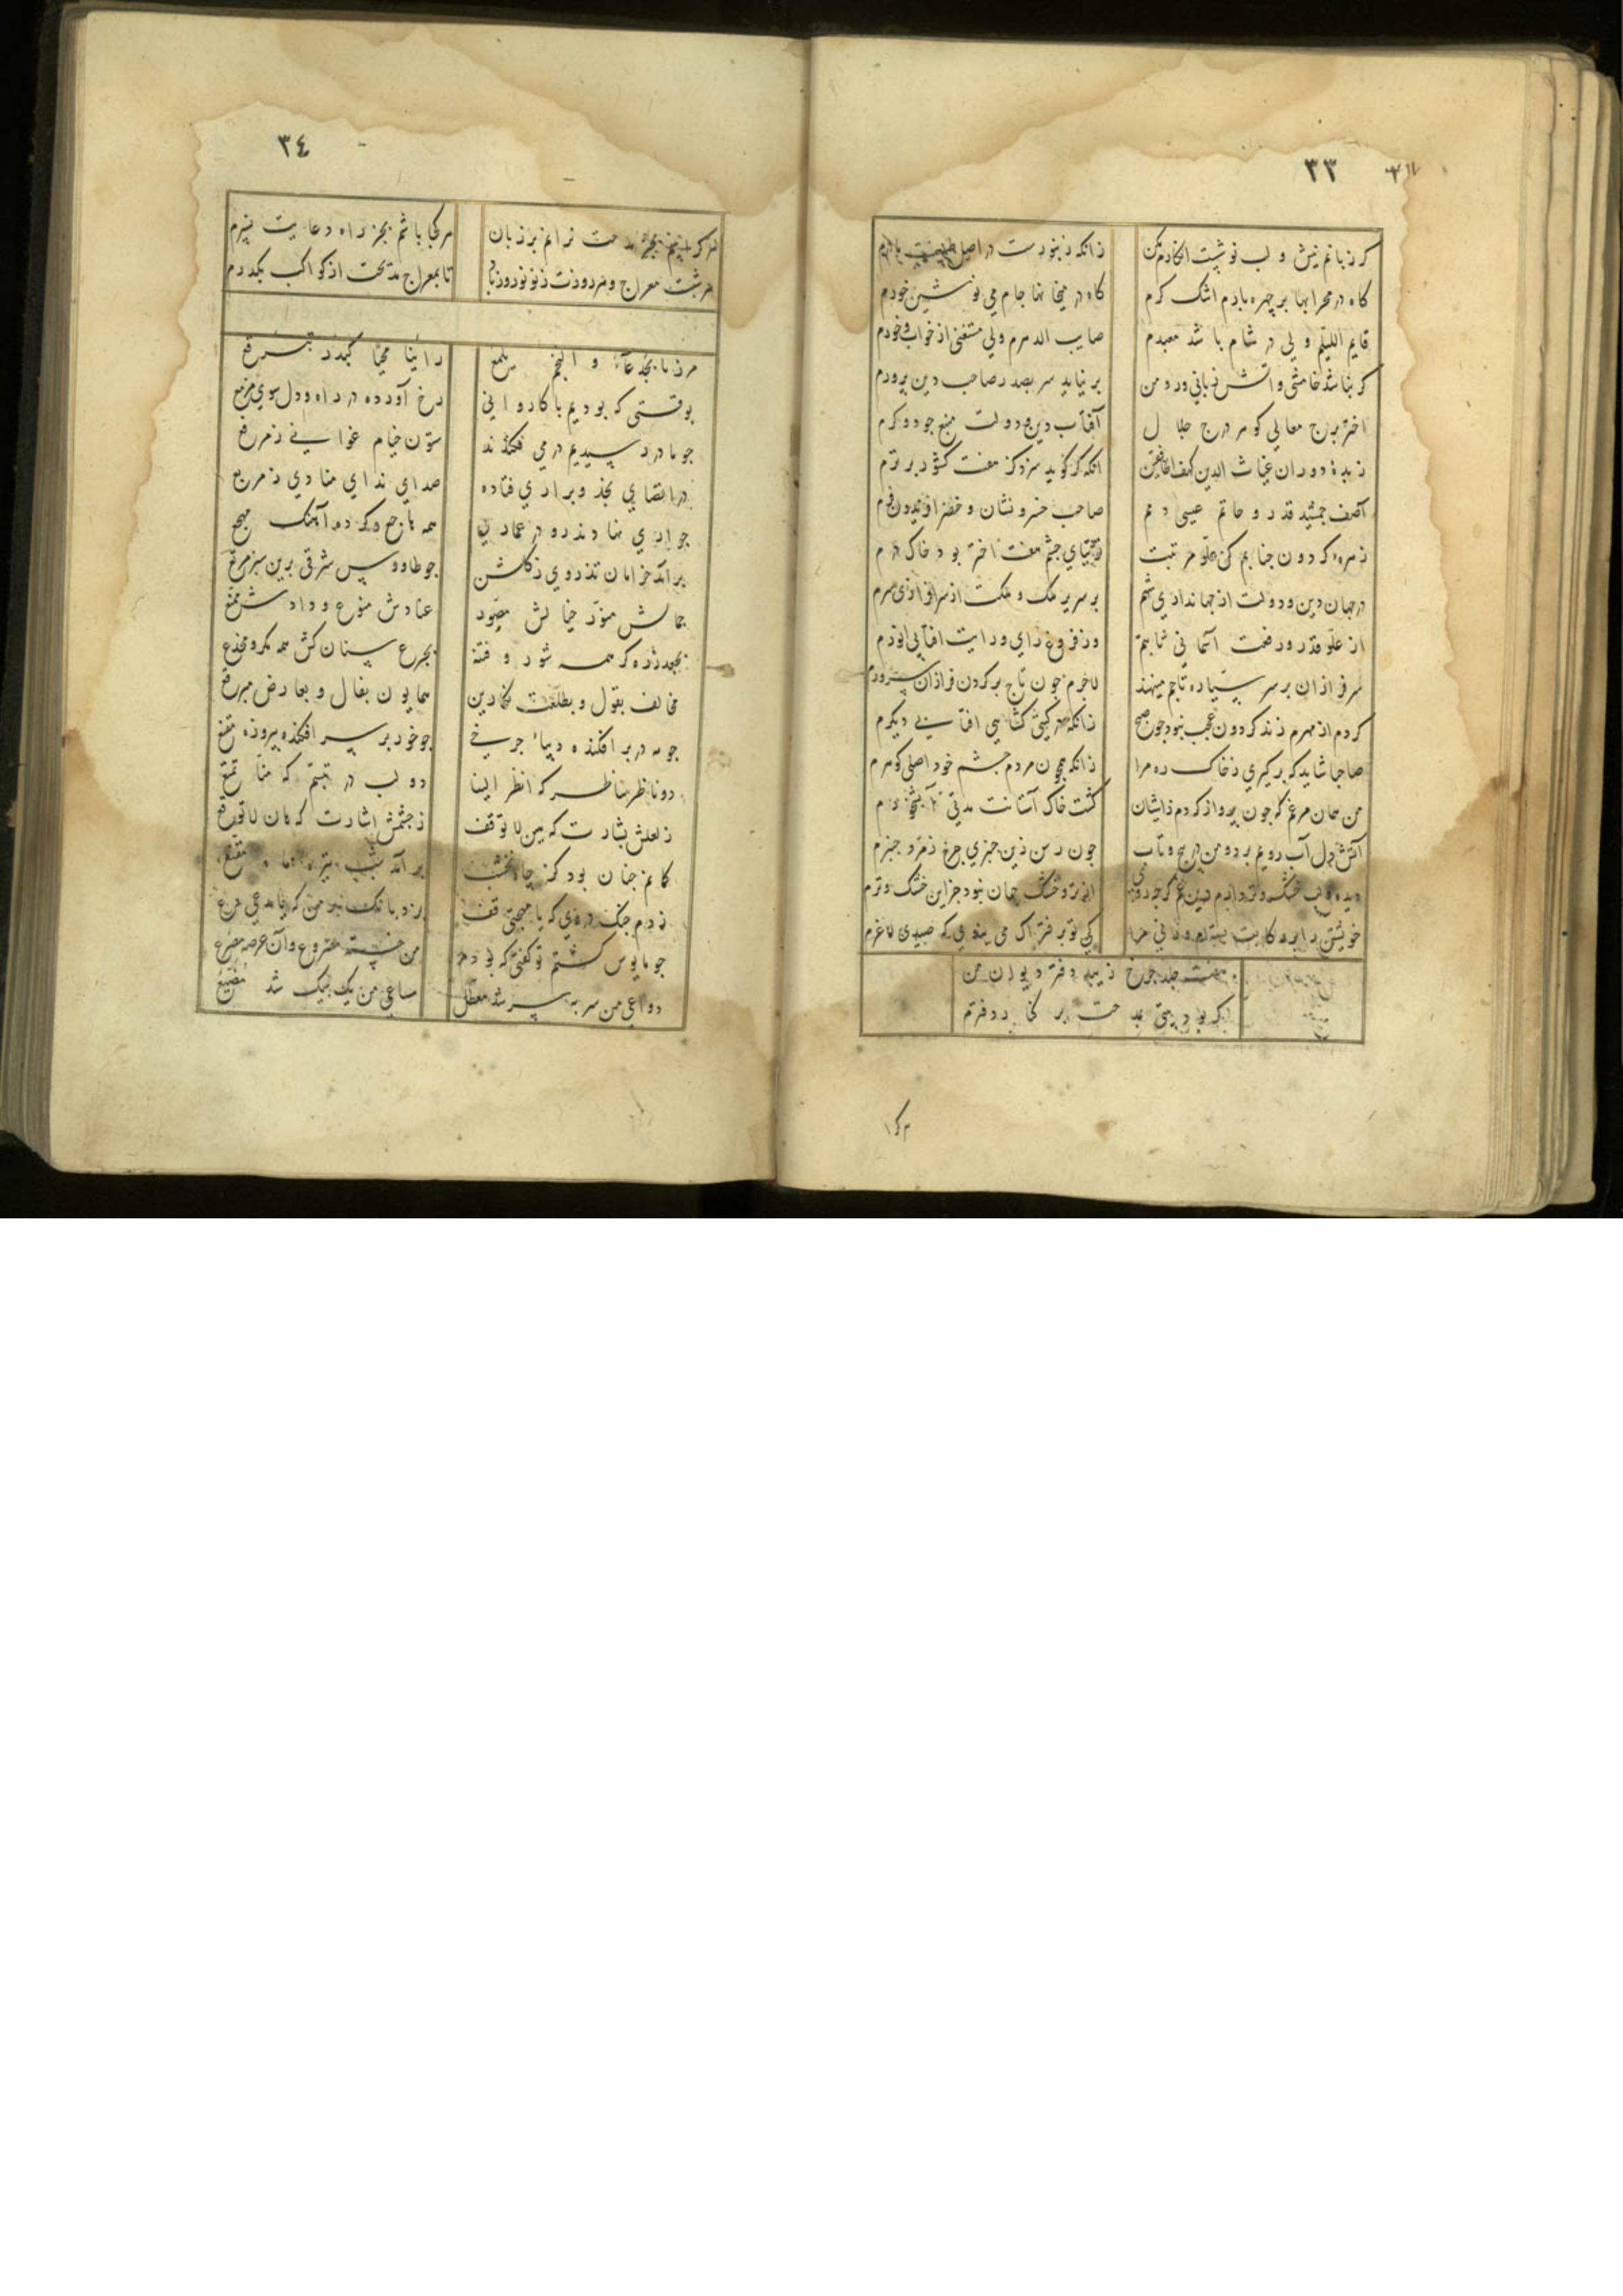 ٣٣
کر زبانم نیش و لب نوشیت انکارم مکن
زانکه زنبورست در اصل طبیعت مادرم
کاه در محرابها بر چهره بارم اشک کرم
کاه در میخانها جام می نوشین خورم
قایم اللیلم ولی در شام باشد معبدم
صایب الدهرم ولی مستغنی از خواب و خورم
کر بناشد خامشی و اتش زبانی ورد من
بر نیاید سر بصدر صاحب دین پرورم
اختر برج معالی کوهر درج جلال
آفتاب دین و دولت منبع جود و کرم
زبدهٔ دوران غیاث الدین کهف الخافقین
انکه کر کوید سزد کز هفت کشور برترم
آصف جمشید قدر و حاتم عیسی دم
صاحب خسرو نشان و خضر افریدون فرم
زهره کردون جنابم کز علو مرتبت
توتیای چشم هفت اختر بود خاک درم
در جهان دین و دولت از جهانداری شهم
بر سریر ملک و ملکت از سرافرازی سرم
از علو قدر و رفعت آسمانی ثابتم
وز فروغ رای و رایت افتابی انورم
سرفرازان بر سر سیاره تاجم مینهند
لاجرم چون تاج بر کردون فرازان سرورم
کر دم از مهرم زند کردون عجب نبود چون صبح
زانکه در کیتی کشایی افتابی دیکرم
صاحبا شاید که برکیری ز خاک ره مرا
زانکه همچون مردم چشم خود اصلی کوهرم
من همان مرغم که چون پرواز کردم زاشیان
کشت خاک آستانت مدتی آبشخورم
آتش دل آب رویم برد و من در پیچ و تاب
چون رسن زین چنبری چرخ زمرد چنبرم
دیده و لب خشک و تر دارم همین غم کر چه روز
از تر و خشک جهان نبود جز این خشک و ترم
خویشتن را بر رکابت بسته‌ام
کی تو بر فتراک می بندی که صیدی لاغرم
هفت جلد چرخ زیبد دفتر دیوان من
کر بود بیتی بمدحت بر کنار دفترم
٣٤
هر کرا بینم بجز مدحت نرانم بر زبان
هر کجا باشم بجز راه دعایت نسپرم
هر شبت معراج و هر روزت ز نو نوروز باد
تا بمعراج مدیحت از کواکب بکذرم
مررنا بجرعاء و النجم یلمع
راینا محیا کبدر تبرقع
بوقتی که بودیم با کاروانی
رخ آورده در راه و دل سوی مربع
چو ما در رسیدیم در می فکندند
ستون خیام غوانی ز مرفع
در اقصای نجد و براری فتاده
صدای ندای منادی ز مرجع
جواری نهادند رو در عماری
همه نازح و کرده آهنک مهجع
برآمد خرامان تذروی ز کلشن
چو طاووس شرقی برین سبز مرفع
جمالش منور خیالش مصور
عنادش منوع ودادش ممنع
بجعد زره کر همه شور و فتنه
بجزع سنان کش همه مکر و مخدع
مخالف بقول و بطلعت نکارین
همایون بفال و بعارض مبرقع
چو مه در بر افکنده دیباء چرخی
چو خور بر سر افکنده پیروزه مقنع
دو ناظر مناظر که انظر الینا
دو لب در تبسم که منا تمتع
ز لعلش بشارت که بین لا توقف
ز چشمش اشارت که هان لا تورع
کانم چنان بود کز چاه نخشب
برآمد شب تیره ماه مقنع
زدم چنک در وی که یا مهجتی قف
بزد بانک بر من که یا مدعی دع
چو مایوس کشتم تو کفتی که بودم
من خسته مصروع و آن عرصه مصرع
دواعی من سر بسر شد معطل
مساعی من یک بیک شد مضیع